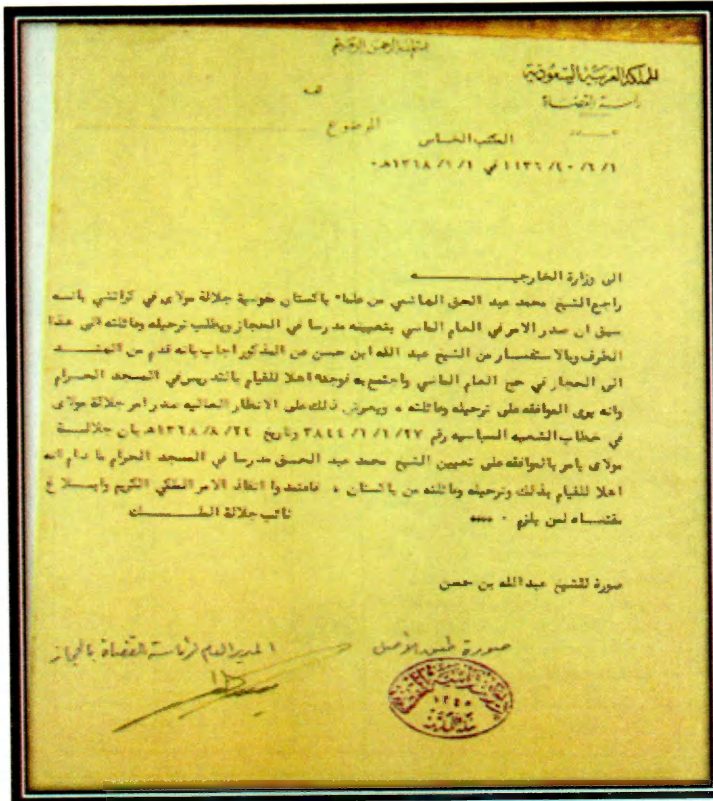 بسم الله الرحمن الرحيم
المملكة العربية السعودية
رئاسة القضاة
الموضوع
المكتب الخاص
الى وزارة الخارجيــة
راجع الشيخ محمد عبد الحق الهاشمي من علماء باكستان مفوضية جلالة مولاى في كراتشي بانــه
سبق ان صدر الامر في العام الماضي بتعيينه مدرسا في الحجاز ويطلب ترحيله وعائلته الى هذا
الطرف وبالاستفسار من الشيخ عبد الله ابن حسن عن المذكور اجاب بانه قدم من الهنــد
الى الحجاز في حج العام الماضي واجتمع به فوجده اهلا للقيام بالتدريس في المسجد الحــرام
وانه يرى الموافقه على ترحيله وعائلته ٠ وبعرض ذلك على الانظار العاليه صدر امر جلالة مولاى
في خطاب الشعبه السياسيه رقم ٣٨٤٤/١/١/٢٧ وتاريخ ١٣٦٨/٨/٢٤هـ بان جلالــة
مولاى يامر بالموافقه على تعيين الشيخ محمد عبد الحــق مدرسا في المسجد الحرام ما دام انه
اهلا للقيام بذلك وترحيله وعائلته من باكستان ٠ فاعتمدوا انفاذ الامر الملكي الكريم وابــلاغ
مقتضــاه لمن يلزم ٠
نائب جلالة الملــك
صورة للشيخ عبد الله بن حسن
صورة طبق الأصل
المدير العام لرئاسة القضاة بالحجاز